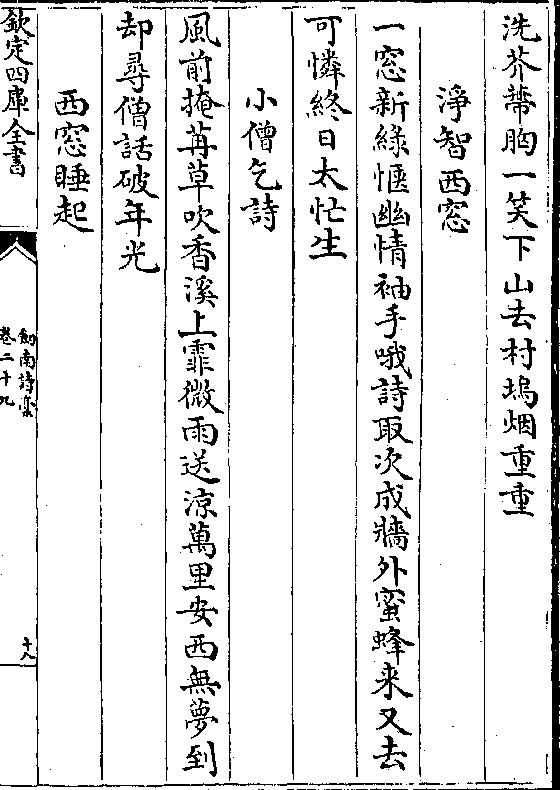 洗芥蔕胸一笑下山去村塢烟重重
淨智西窓
一窓新綠愜幽情袖手哦詩取次成牆外蜜蜂来又去
可憐終日太忙生
小僧乞詩
風前掩苒草吹香溪上霏微雨送涼萬里安西無夢到
却尋僧話破年光
西窓睡起
欽定四庫全書
劒南詩稾
卷二十九
十八